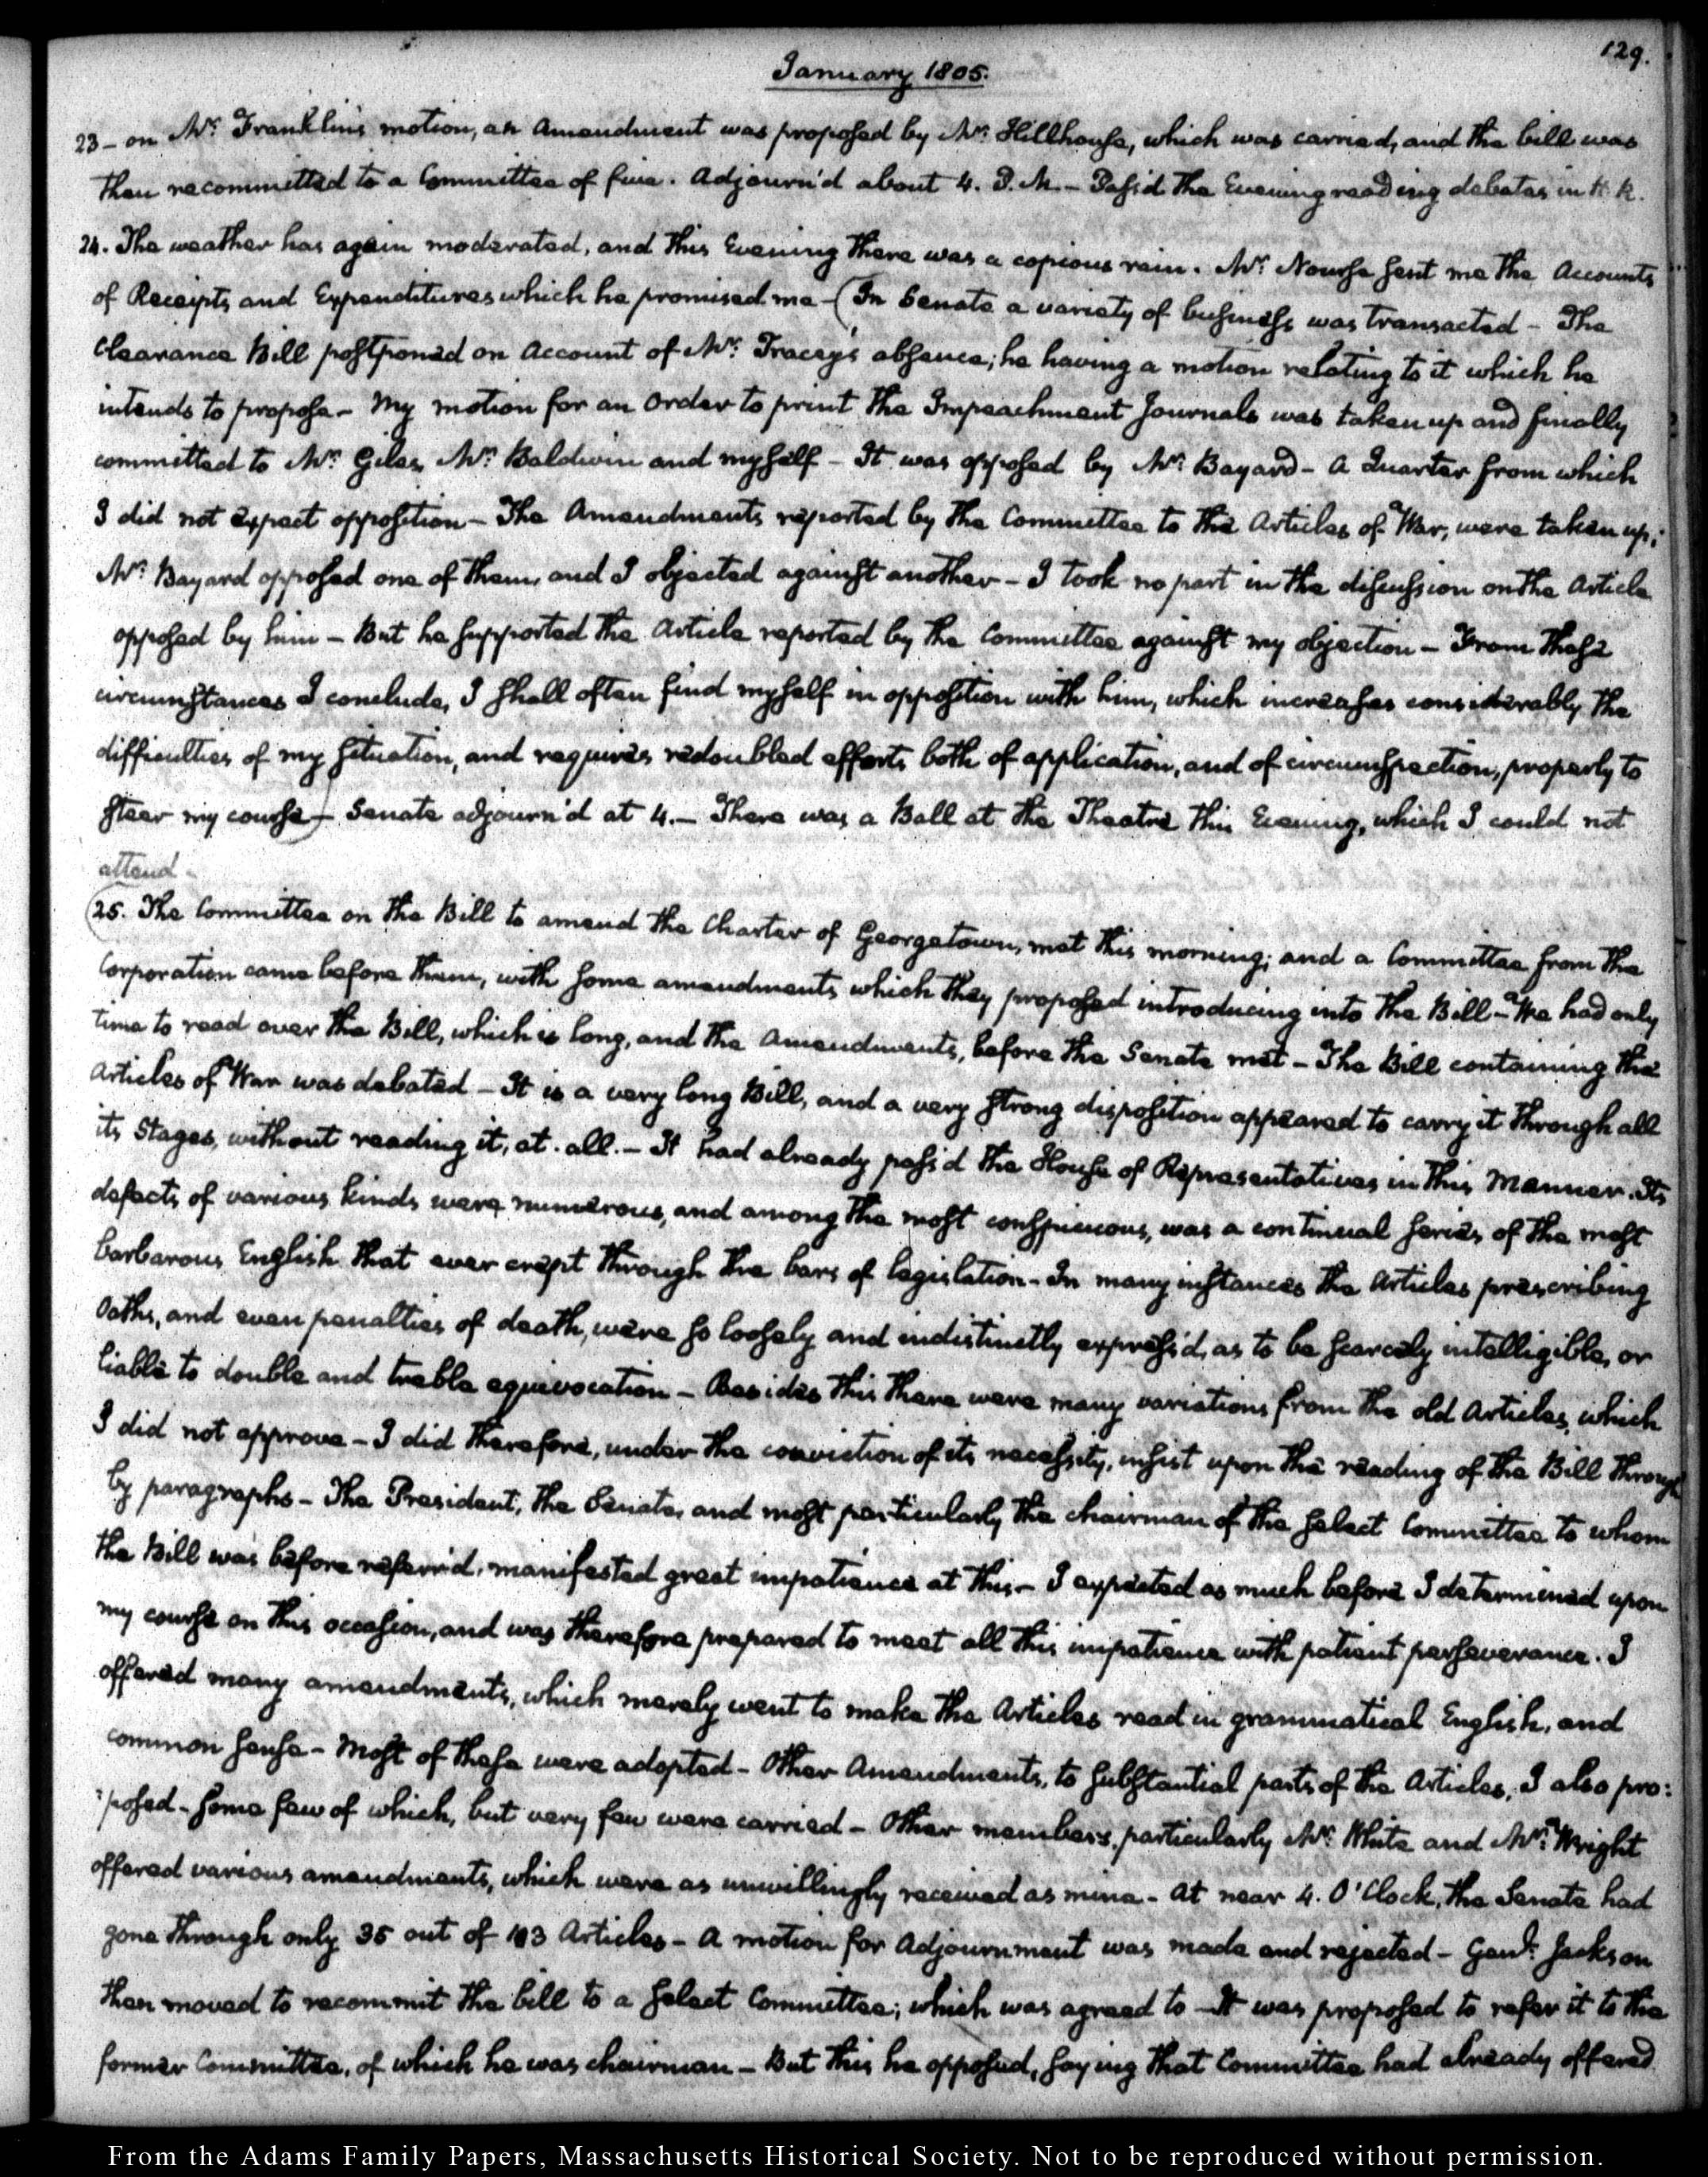 129.
January 1805.
23 – on Mr. Franklin's motion, an Amendment was proposed by Mr. Hillhouse, which was carried, and the bill was
then recommitted to a Committee of five. Adjourn'd about 4. P.M. – Pass'd the Evening reading debates in
24. The weather has again moderated, and this Evening there was a copious rain. Mr. Nourse sent me the Accounts
of Receipts and Expenditures which he promised me – (In Senate a variety of business was transacted – The
Clearance Bill postponed on Account of Mr. Tracey's absence; he having a motion relating to it which he
intends to propose – My motion for an Order to print the Impeachment Journals was taken up and finally
committed to Mr. Giles, Mr. Baldwin and myself – It was opposed by Mr. Bayard – a Quarter from which
I did not expect opposition – The Amendments reported by the Committee to the Articles of War, were taken up;
Mr. Bayard opposed one of them, and I objected against another – I took no part in the discussion on the Article
opposed by him – But he supported the Article reported by the Committee against my objection – From these
circumstances I conclude, I shall often find myself in opposition with him, which increases considerably the
difficulties of my situation, and requires redoubled efforts both of application, and of circumspection, properly to
steer my course) – Senate adjourn'd at 4. – There was a Ball at the Theatre this Evening, which I could not
attend –
(25. The Committee on the Bill to amend the Charter of Georgetown, met this morning; and a Committee from the
Corporation came before them, with some amendments which they proposed introducing into the Bill – We had only
time to read over the Bill, which is long, and the Amendments, before the Senate met – The Bill containing the
Articles of War was debated – It is a very long Bill, and a very strong disposition appeared to carry it through all
its Stages, without reading it, at all. – It had already pass'd the House of Representatives in this Manner. Its
defects of various kinds were numerous, and among the most conspicuous, was a continual series of the most
barbarous English that ever crept through the bars of legislation – In many instances the Articles prescribing
Oaths, and even penalties of death, were so loosely and indistinctly express'd, as to be scarcely intelligible, or
liable to double and treble equivocation – Besides this there were many variations from the old Articles, which
I did not approve – I did therefore, under the conviction of its necessity, insist upon the reading of the Bill through
by paragraphs – The President, the Senate, and most particularly the chairman of the select Committee to whom
the Bill was before referr'd, manifested great impatience at this – I expected as much before I determined upon
my course on this occasion, and was therefore prepared to meet all this impatience with patient perseverance. I
offered many amendments, which merely went to make the Articles read in grammatical English, and
common sense – Most of these were adopted – Other Amendments, to substantial parts of the Articles, I also pro:
:posed – some few of which, but very few were carried – Other members, particularly Mr. White and Mr. Wright
offered various amendments, which were as unwillingly received as mine – At near 4. O'Clock, the Senate had
gone through only 35 out of 103 Articles – A motion for Adjournment was made and rejected – Genl. Jackson
then moved to recommit the bill to a select Committee; which was agreed to – It was proposed to refer it to the
former Committee, of which he was chairman – But this he opposed, saying that Committee had already offered
From the Adams Family Papers, Massachusetts Historical Society. Not to be reproduced without permission.